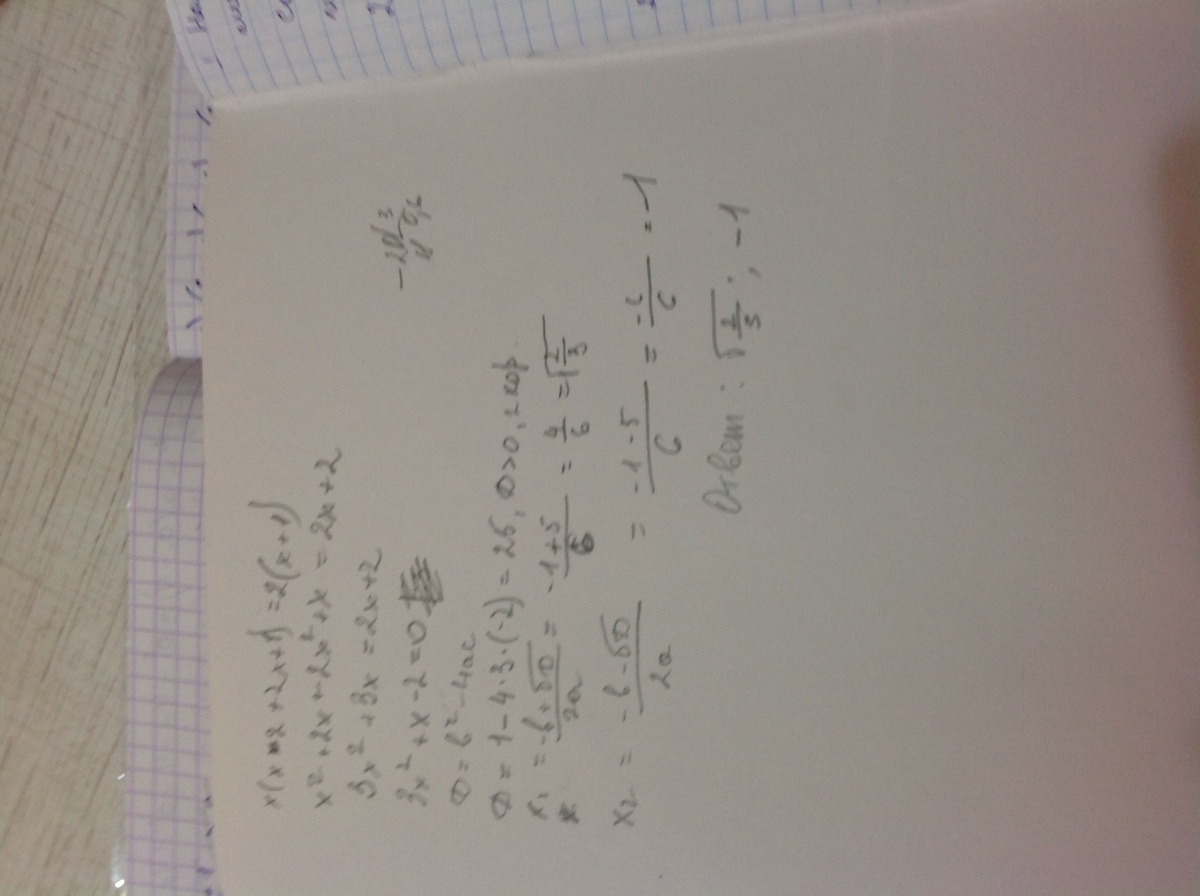 x(x+2+2x+1)=2(x+1)
x²+2x+2x²+x=2x+2
3x²+3x=2x+2
3x²+x-2=0
D=b²-4ac
D=1-4·3·(-2)=25, D>0, 2 кор.
x₁=-b+√D/2a=-1+5/6=4/6=√2/3
x₂=-b-√D/2a=-1-5/6=-6/6=-1
Ответ: √2/3; -1